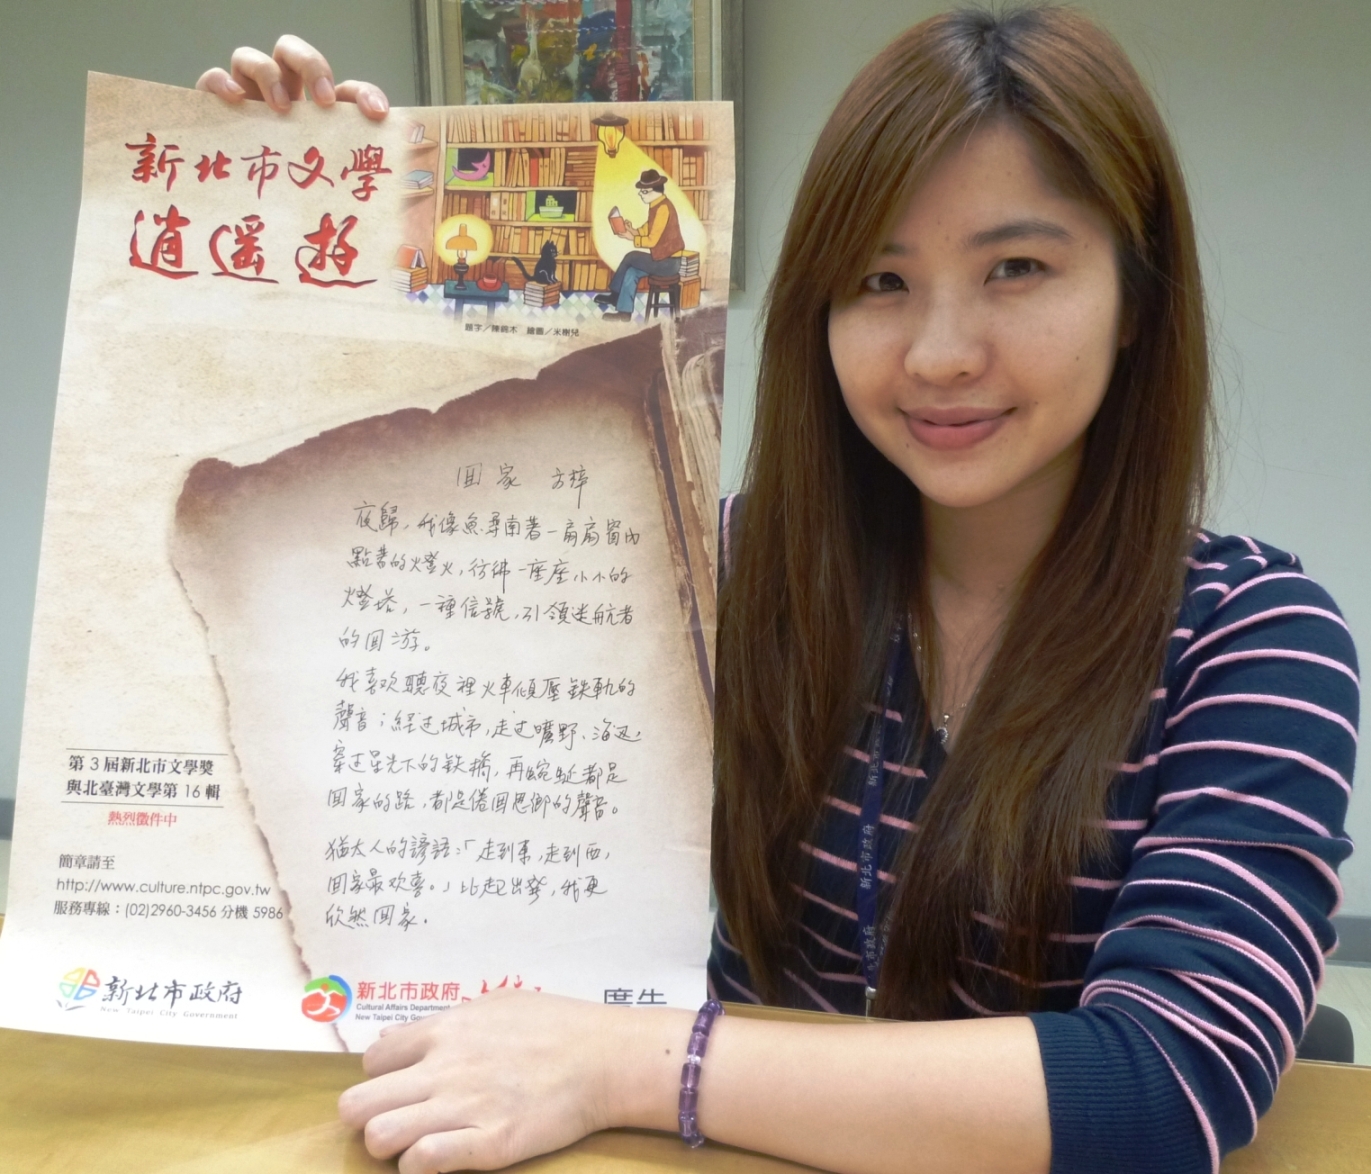 新北市文學
逍遙遊
題字／陳錦木 繪畫／米樹兒
回家 方梓
夜歸，我像魚尋南著一扇扇窗內
點著的燈火，彷彿一座座小小的
燈塔，一種信號，引領迷航者
的回游。
我喜欢聽夜裡火車傾壓鉄軌的
聲音；經过城市，走过曠野、海边，
穿过星光下的鉄橋，再蜿蜒都是
回家的路，都是倦回思鄉的聲音。
猶太人的諺語：「走到東，走到西，
回家最欢喜。」比起出發，我更
欣然回家。
第3屆新北市文學獎
與北臺灣文學第16輯
熱烈徵件中
簡章請至
http://www.culture.ntpc.gov.tw
服務專線：(02)2960-3456 分機 5986
新北市政府
New Taipei City Government
新北市政府
Cultural Affairs Department
New Taipei City
廣告
新北市政府
新北市政府
北市政府